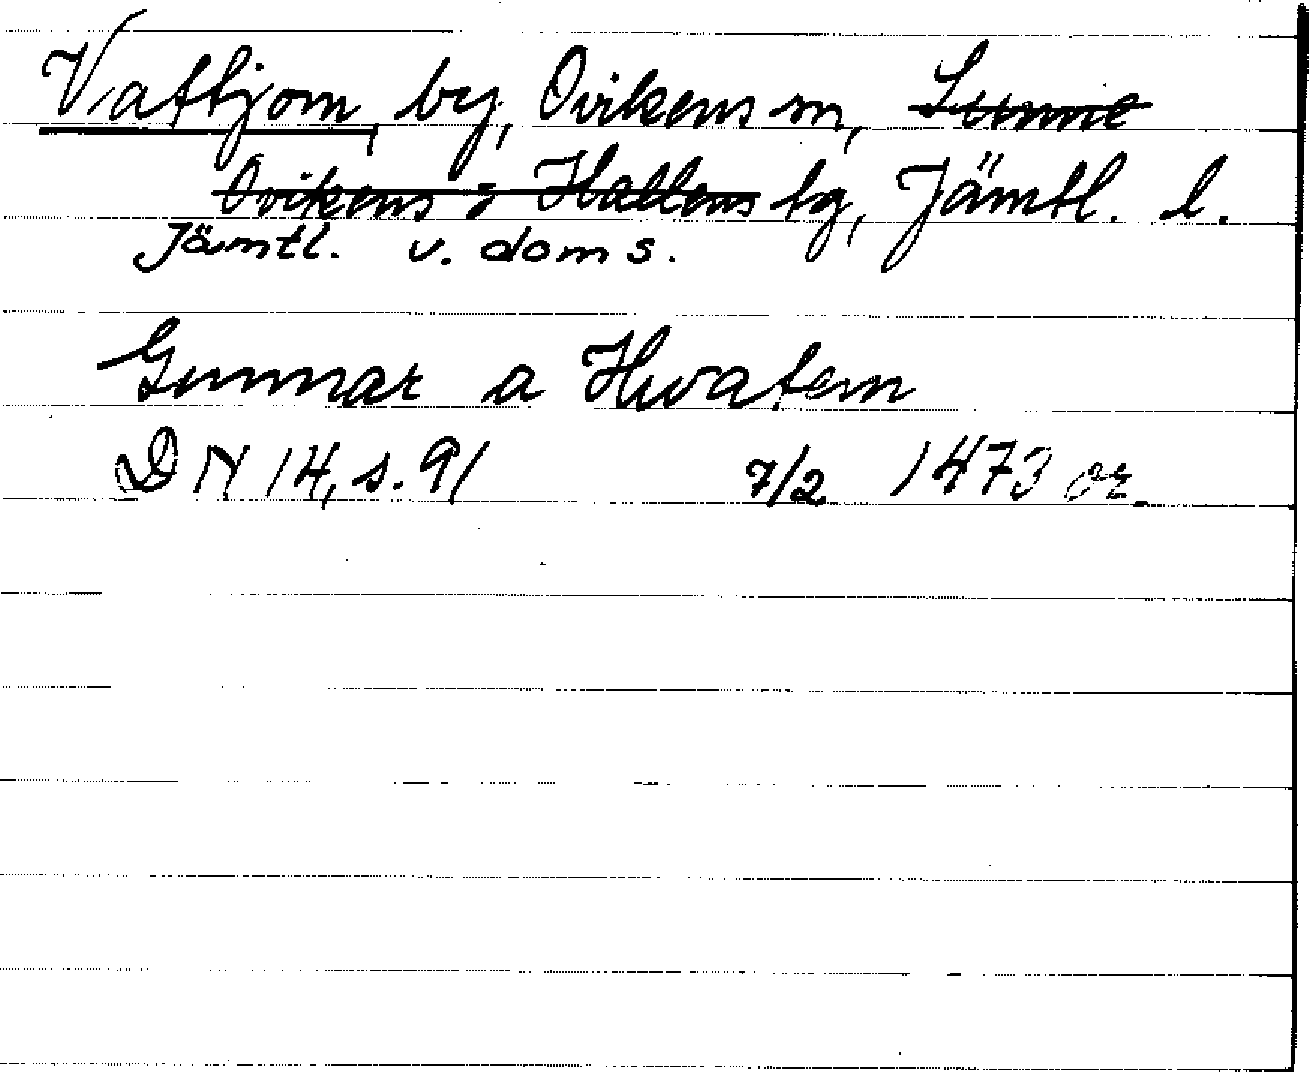 Vattjom, by, Ovikens sn, Sunne
Ovikens o Hallens tg, Jämtl. l.
Jämtl. v. doms.
Gunnar a Hwatem
DN 14, s. 91 7/2 1473 or.